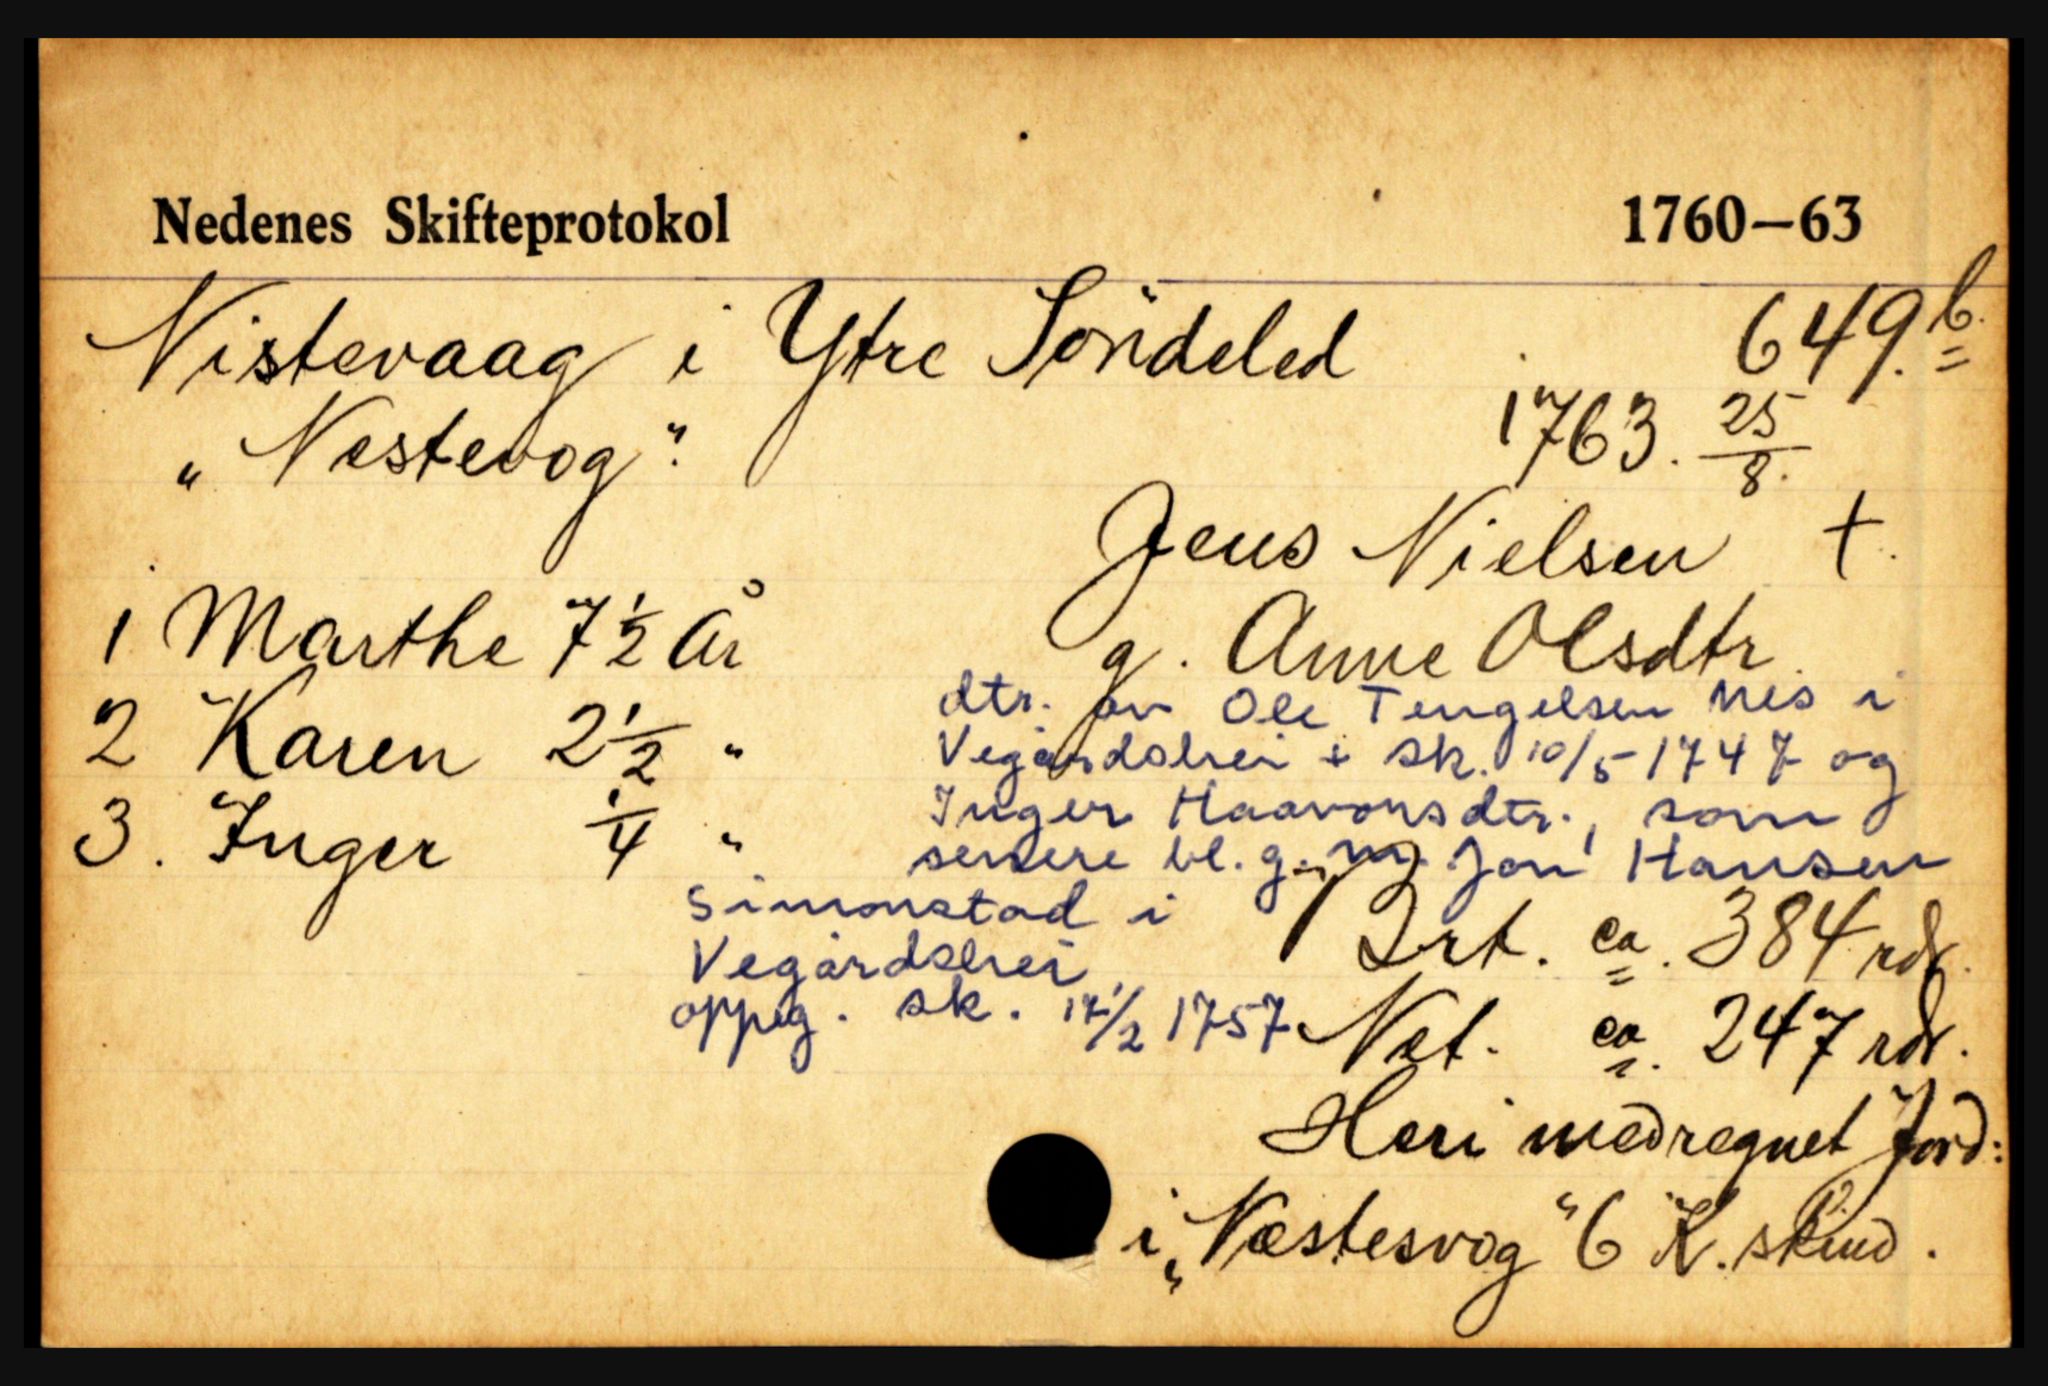 Nedenes Skifteprotokol 1760–63
Nistevaag i Ytre Söndeled 649.b.
„Nestevog“.
1763. 25/8.
Jens Nielsen †.
1 Marthe 7 1/2 År
g. Anne Olsdtr.
dtr. av Ole Tengelsen Nes i
2 Karen 2 1/2 "
Vegårdshei + sk. 10/5-1747 og
3. Inger 1/4 "
Inger Haavorsdtr., som
senere bl. g. m. Jon Hansen
Simonstad i
Vegårdshei
oppg. sk. 17/2 1757
Brt. ca. 384 rdr.
Net. ca. 247 rdr.
Heri medregnet Jord:
i „Næstesvog“ 6 K. skind.